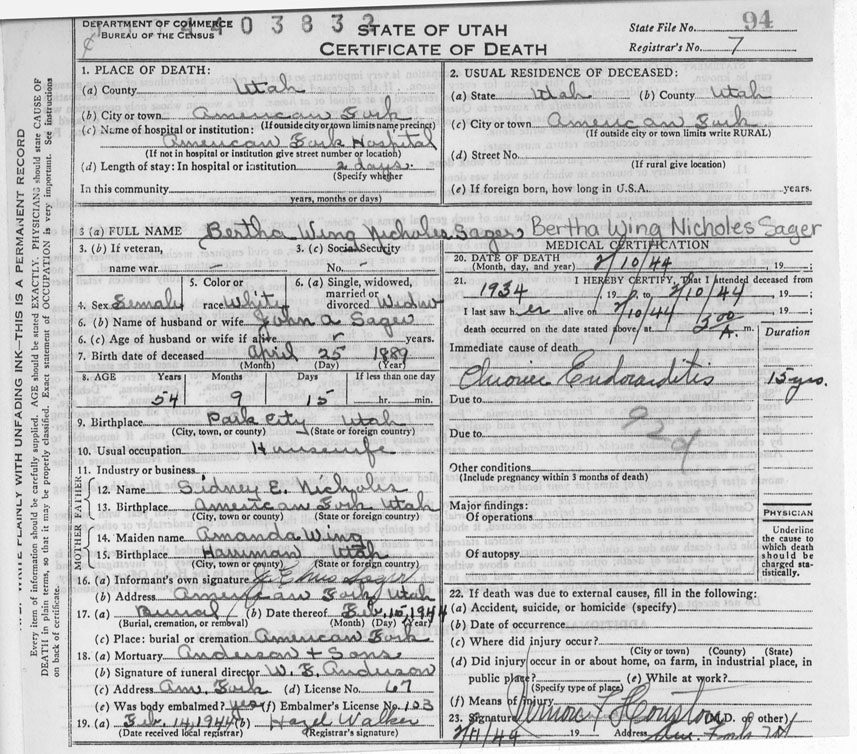 DEPARTMENT OF COMMERCE
BUREAU OF THE CENSUS
4403832
STATE OF UTAH
CERTIFICATE OF DEATH
State File No. 94
Registrar's No. 7
1. PLACE OF DEATH:
(a) County Utah
(b) City or town American Fork
(If outside city or town limits name precinct)
(c) Name of hospital or institution:
American Fork Hospital
(If not in hospital or institution give street number or location)
(d) Length of stay: In hospital or institution 2 days.
(Specify whether
In this community
years, months or days)
2. USUAL RESIDENCE OF DECEASED:
(a) State Utah (b) County Utah
(c) City or town American Fork
(If outside city or town limits write RURAL)
(d) Street No.
(If rural give location)
(e) If foreign born, how long in U.S.A. years.
3 (a) FULL NAME Bertha Wing Nicholes Sager Bertha Wing Nicholes Sager
3. (b) If veteran, name war –
3. (c) Social Security No. –
4. Sex Female
5. Color or race White
6. (a) Single, widowed, married or divorced Widow
6. (b) Name of husband or wife John A Sager
6. (c) Age of husband or wife if alive years.
7. Birth date of deceased April 25 1889
(Month) (Day) (Year)
8. AGE Years Months Days If less than one day
54 9 15 hr. min.
9. Birthplace Park City Utah
(City, town, or county) (State or foreign country)
10. Usual occupation Housewife
11. Industry or business
FATHER
12. Name Sidney E. Nicholes
13. Birthplace American Fork Utah
(City, town or county) (State or foreign country)
MOTHER
14. Maiden name Amanda Wing
15. Birthplace Harriman Utah
(City, town or county) (State or foreign country)
16. (a) Informant's own signature Sager
(b) Address American Fork Utah
17. (a) Burial (b) Date thereof Feb. 15, 1944
(Burial, cremation, or removal) (Month) (Day) (Year)
(c) Place: burial or cremation American Fork
18. (a) Mortuary Anderson + Sons
(b) Signature of funeral director W. E. Anderson
(c) Address Am. Fork (d) License No. 67
(e) Was body embalmed? yes (f) Embalmer's License No. 103
19. (a) Feb. 14, 1944 (b) Hazel Walker
(Date received local registrar) (Registrar's signature)
MEDICAL CERTIFICATION
20. DATE OF DEATH
(Month, day, and year) 2/10/44, 19 ;
21. I HEREBY CERTIFY, That I attended deceased from
1934, 19 to 2/10/44, 19 ;
I last saw her alive on 2/10/44, 19 ;
death occurred on the date stated above, at 3:00 A. m.
Duration
Immediate cause of death
Chronic Endocarditis 15 yrs.
Due to
92d
Due to
Other conditions
(Include pregnancy within 3 months of death)
Major findings:
Of operations
Of autopsy
PHYSICIAN
Underline the cause to which death should be charged statistically.
22. If death was due to external causes, fill in the following:
(a) Accident, suicide, or homicide (specify)
(b) Date of occurrence
(c) Where did injury occur?
(City or town) (County) (State)
(d) Did injury occur in or about home, on farm, in industrial place, in
public place? (e) While at work?
(Specify type of place)
(f) Means of injury
23. Signature Vernon Houston (M.D. or other)
2/11/44 19 Address Am. Fork
WRITE PLAINLY WITH UNFADING INK—THIS IS A PERMANENT RECORD
Every item of information should be carefully supplied. AGE should be stated EXACTLY. PHYSICIANS should state CAUSE OF
DEATH in plain terms, so that it may be properly classified. Exact statement of OCCUPATION is very important. See instructions
on back of certificate.